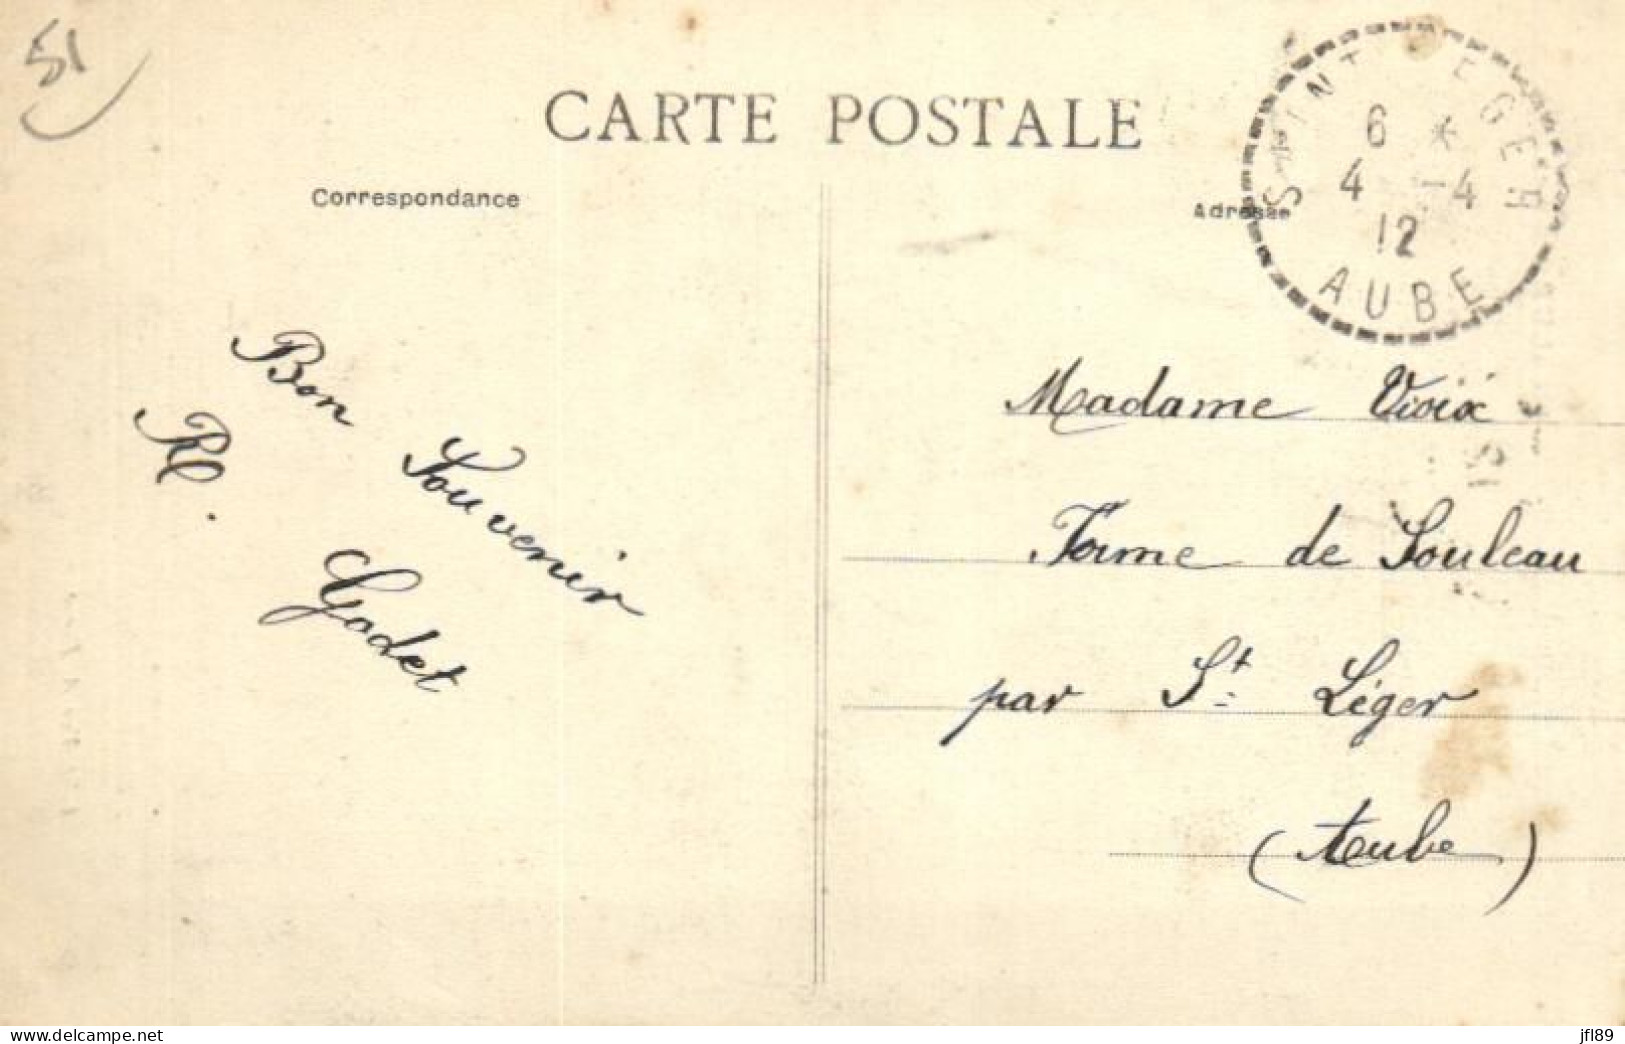 51
CARTE POSTALE
Correspondance
Adresse
SAINT LEGER
6 *
4 -4
12
AUBE
Bon Souvenir
R. Godet
Madame Vioix
Ferme de Souleau
par St Léger
(Aube)
www.delcampe.net
jfl89